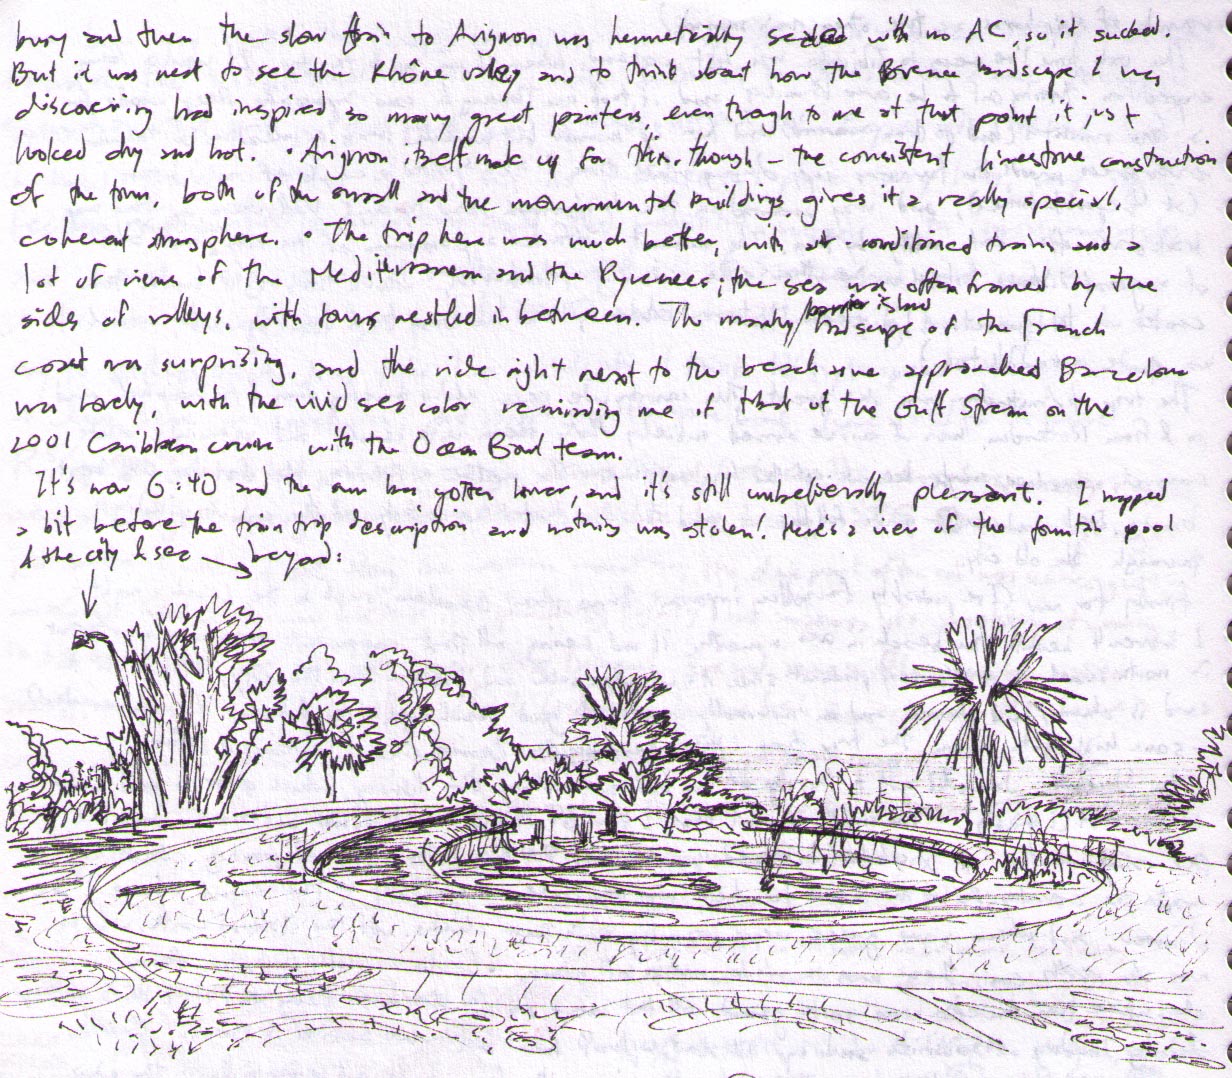 busy and then the slow train to Avignon was hermetically sealed with no AC, so it sucked.
But it was neat to see the Rhône valley and to think about how the Provence landscape I was
discovering had inspired so many great painters, even though to me at that point it just
looked dry and hot. • Avignon itself made up for this, though – the consistent limestone construction
of the town, both of the small and the monumental buildings gives it a really special,
coherent atmosphere. • The trip here was much better, with air-conditioned trains and a
lot of views of the Mediterranean and the Pyrenees; the sea was often framed by the
sides of valleys, with towns nestled in between. The marshy/barrier island landscape of the French
coast was surprising, and the ride right next to the beach as we approached Barcelona
was lovely, with the vivid sea color reminding me of that of the Gulf Stream on the
2001 Caribbean cruise with the Ocean Bowl team.
It's now 6:40 and the sun has gotten lower, and it's still unbelievably pleasant. I napped
a bit before the train trip description and nothing was stolen. Here's a view of the fountain pool
& the city & sea beyond: